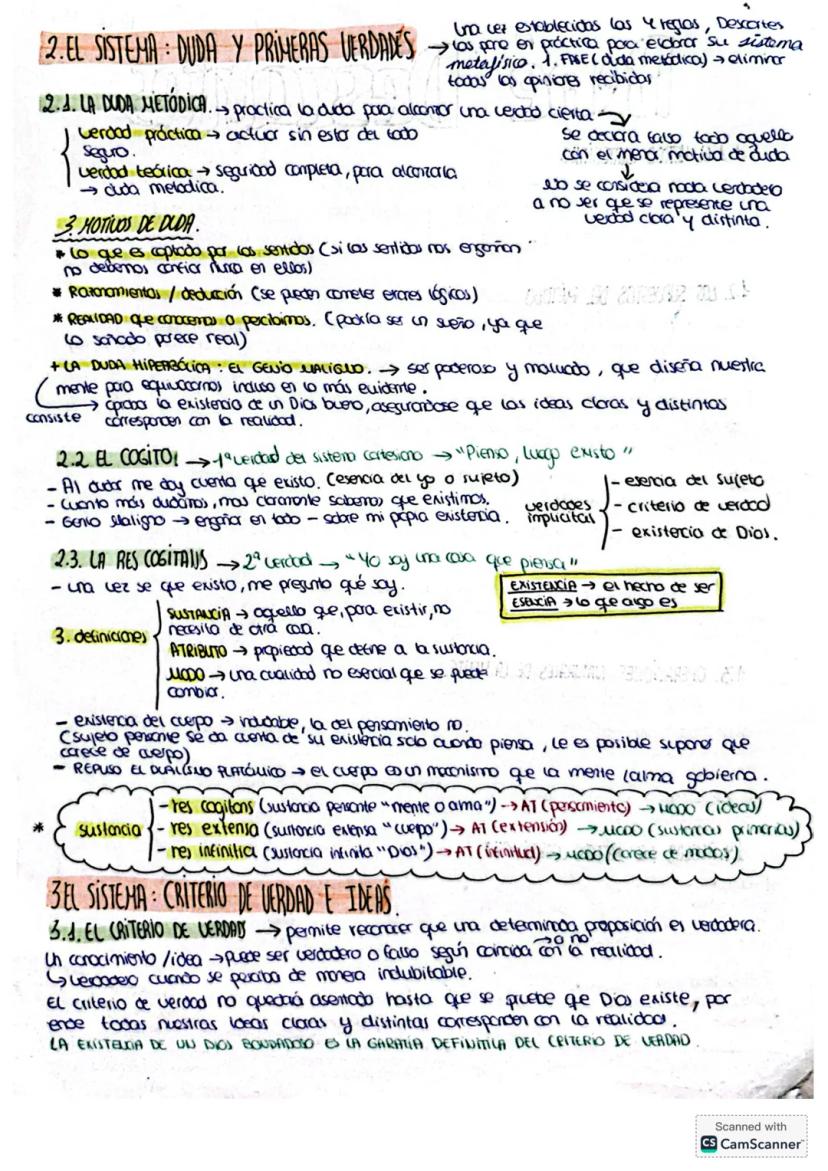 2. EL SISTEMA: DUDA Y PRIMERAS VERDADES
→ Una vez establecidas las 4 reglas, Descartes
las pone en práctica para elaborar su sistema
metafísico. 1. FASE (duda metódica) → eliminar
todas las opiniones recibidas
2.1. LA DUDA METÓDICA. → practica la duda para alcanzar una verdad cierta
verdad práctica → actuar sin estar del todo
seguro.
verdad teórica → seguridad completa, para alcanzarla
→ duda metódica.
Se declara falso todo aquello
con el menor motivo de duda
↓
No se considera nada verdadero
a no ser que se represente una
verdad clara y distinta.
3 MOTIVOS DE DUDA.
* Lo que es captado por los sentidos (si los sentidos nos engañan
no debemos confiar nunca en ellos)
* Razonamientos / deducción (se pueden cometer errores lógicos)
* REALIDAD que conocemos o percibimos. (podría ser un sueño, ya que
lo soñado parece real)
+ LA DUDA HIPERBÓLICA: EL GENIO MALIGNO. → ser poderoso y malvado, que diseña nuestra
mente para equivocarnos incluso en lo más evidente.
consiste → probar la existencia de un Dios bueno, asegurandose que las ideas claras y distintas
corresponden con la realidad.
2.2 EL COGITO: → 1ª verdad del sistema cartesiano → "Pienso, luego existo"
- Al dudar me doy cuenta que existo. (esencia del yo o sujeto)
- Cuanto más dudamos, mas claramente sabemos que existimos.
- Genio Maligno → engañar en todo - sobre mi propia existencia.
verdades
implícitas
- esencia del sujeto
- criterio de verdad
- existencia de Dios.
2.3. LA RES COGITANS → 2ª verdad → "Yo soy una cosa que piensa"
- una vez se que existo, me pregunto qué soy.
EXISTENCIA → el hecho de ser
ESENCIA → lo que algo es
3. definiciones
SUSTANCIA → aquello que, para existir, no
necesita de otra cosa.
ATRIBUTO → propiedad que define a la sustancia.
MODO → una cualidad no esencial que se puede
cambiar.
- existencia del cuerpo → indudable, la del pensamiento no.
(sujeto pensante se da cuenta de su existencia solo cuando piensa, le es posible suponer que
carece de cuerpo)
- REPUSO EL DUALISMO PLATÓNICO → el cuerpo es un mecanismo que la mente/alma gobierna.
* sustancia
- res cogitans (sustancia pensante "mente o alma") → AT (pensamiento) → MODO (ideas)
- res extensa (sustancia extensa "cuerpo") → AT (extensión) → MODO (sustancias primarias)
- res infinitia (sustancia infinita "Dios") → AT (infinitud) → MODO (carece de modos)
3 EL SISTEMA: CRITERIO DE VERDAD E IDEAS.
3.1. EL CRITERIO DE VERDAD → permite reconocer que una determinada proposición es verdadera.
Un conocimiento / idea → puede ser verdadero o falso según coincida → o no con la realidad.
↳ verdadero cuando se perciba de manera indubitable.
El criterio de verdad no quedará asentado hasta que se pruebe que Dios existe, por
ende todas nuestras ideas claras y distintas corresponden con la realidad.
LA EXISTENCIA DE UN DIOS BONDADOSO ES LA GARATÍA DEFINITIVA DEL CRITERIO DE VERDAD.
Scanned with
CS CamScanner